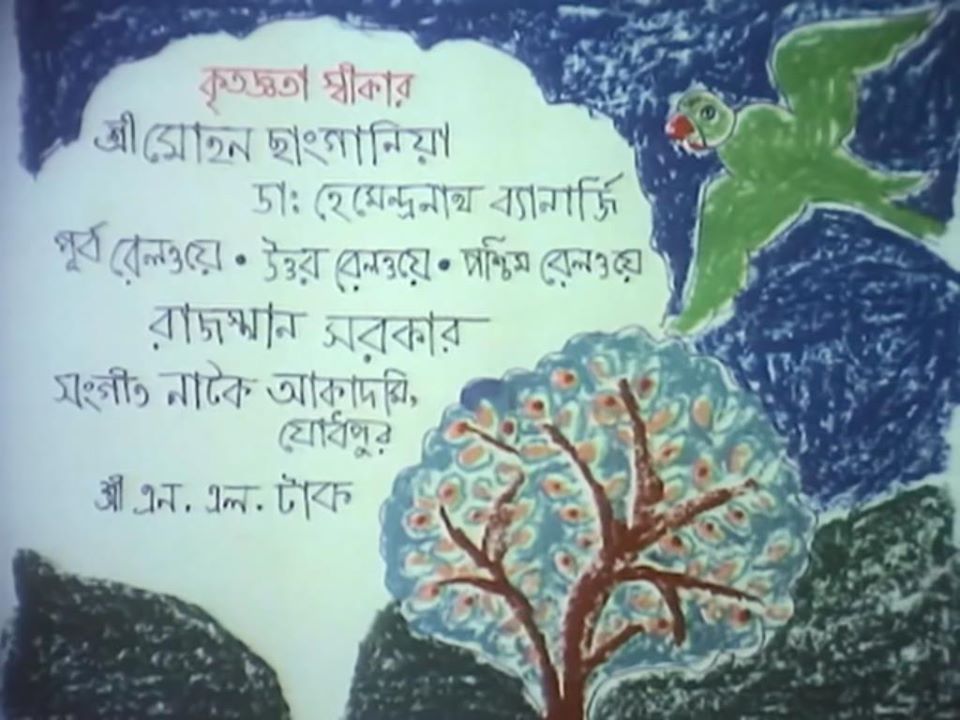 কৃতজ্ঞতা স্বীকার
শ্রী মোহন ছাংগানিয়া
ডাঃ হেমেন্দ্রনাথ ব্যানার্জি
পূর্ব রেলওয়ে • উত্তর রেলওয়ে • পশ্চিম রেলওয়ে
রাজস্থান সরকার
সংগীত নাটক আকাদমি,
যোধপুর
শ্রী এন. এল. টাক